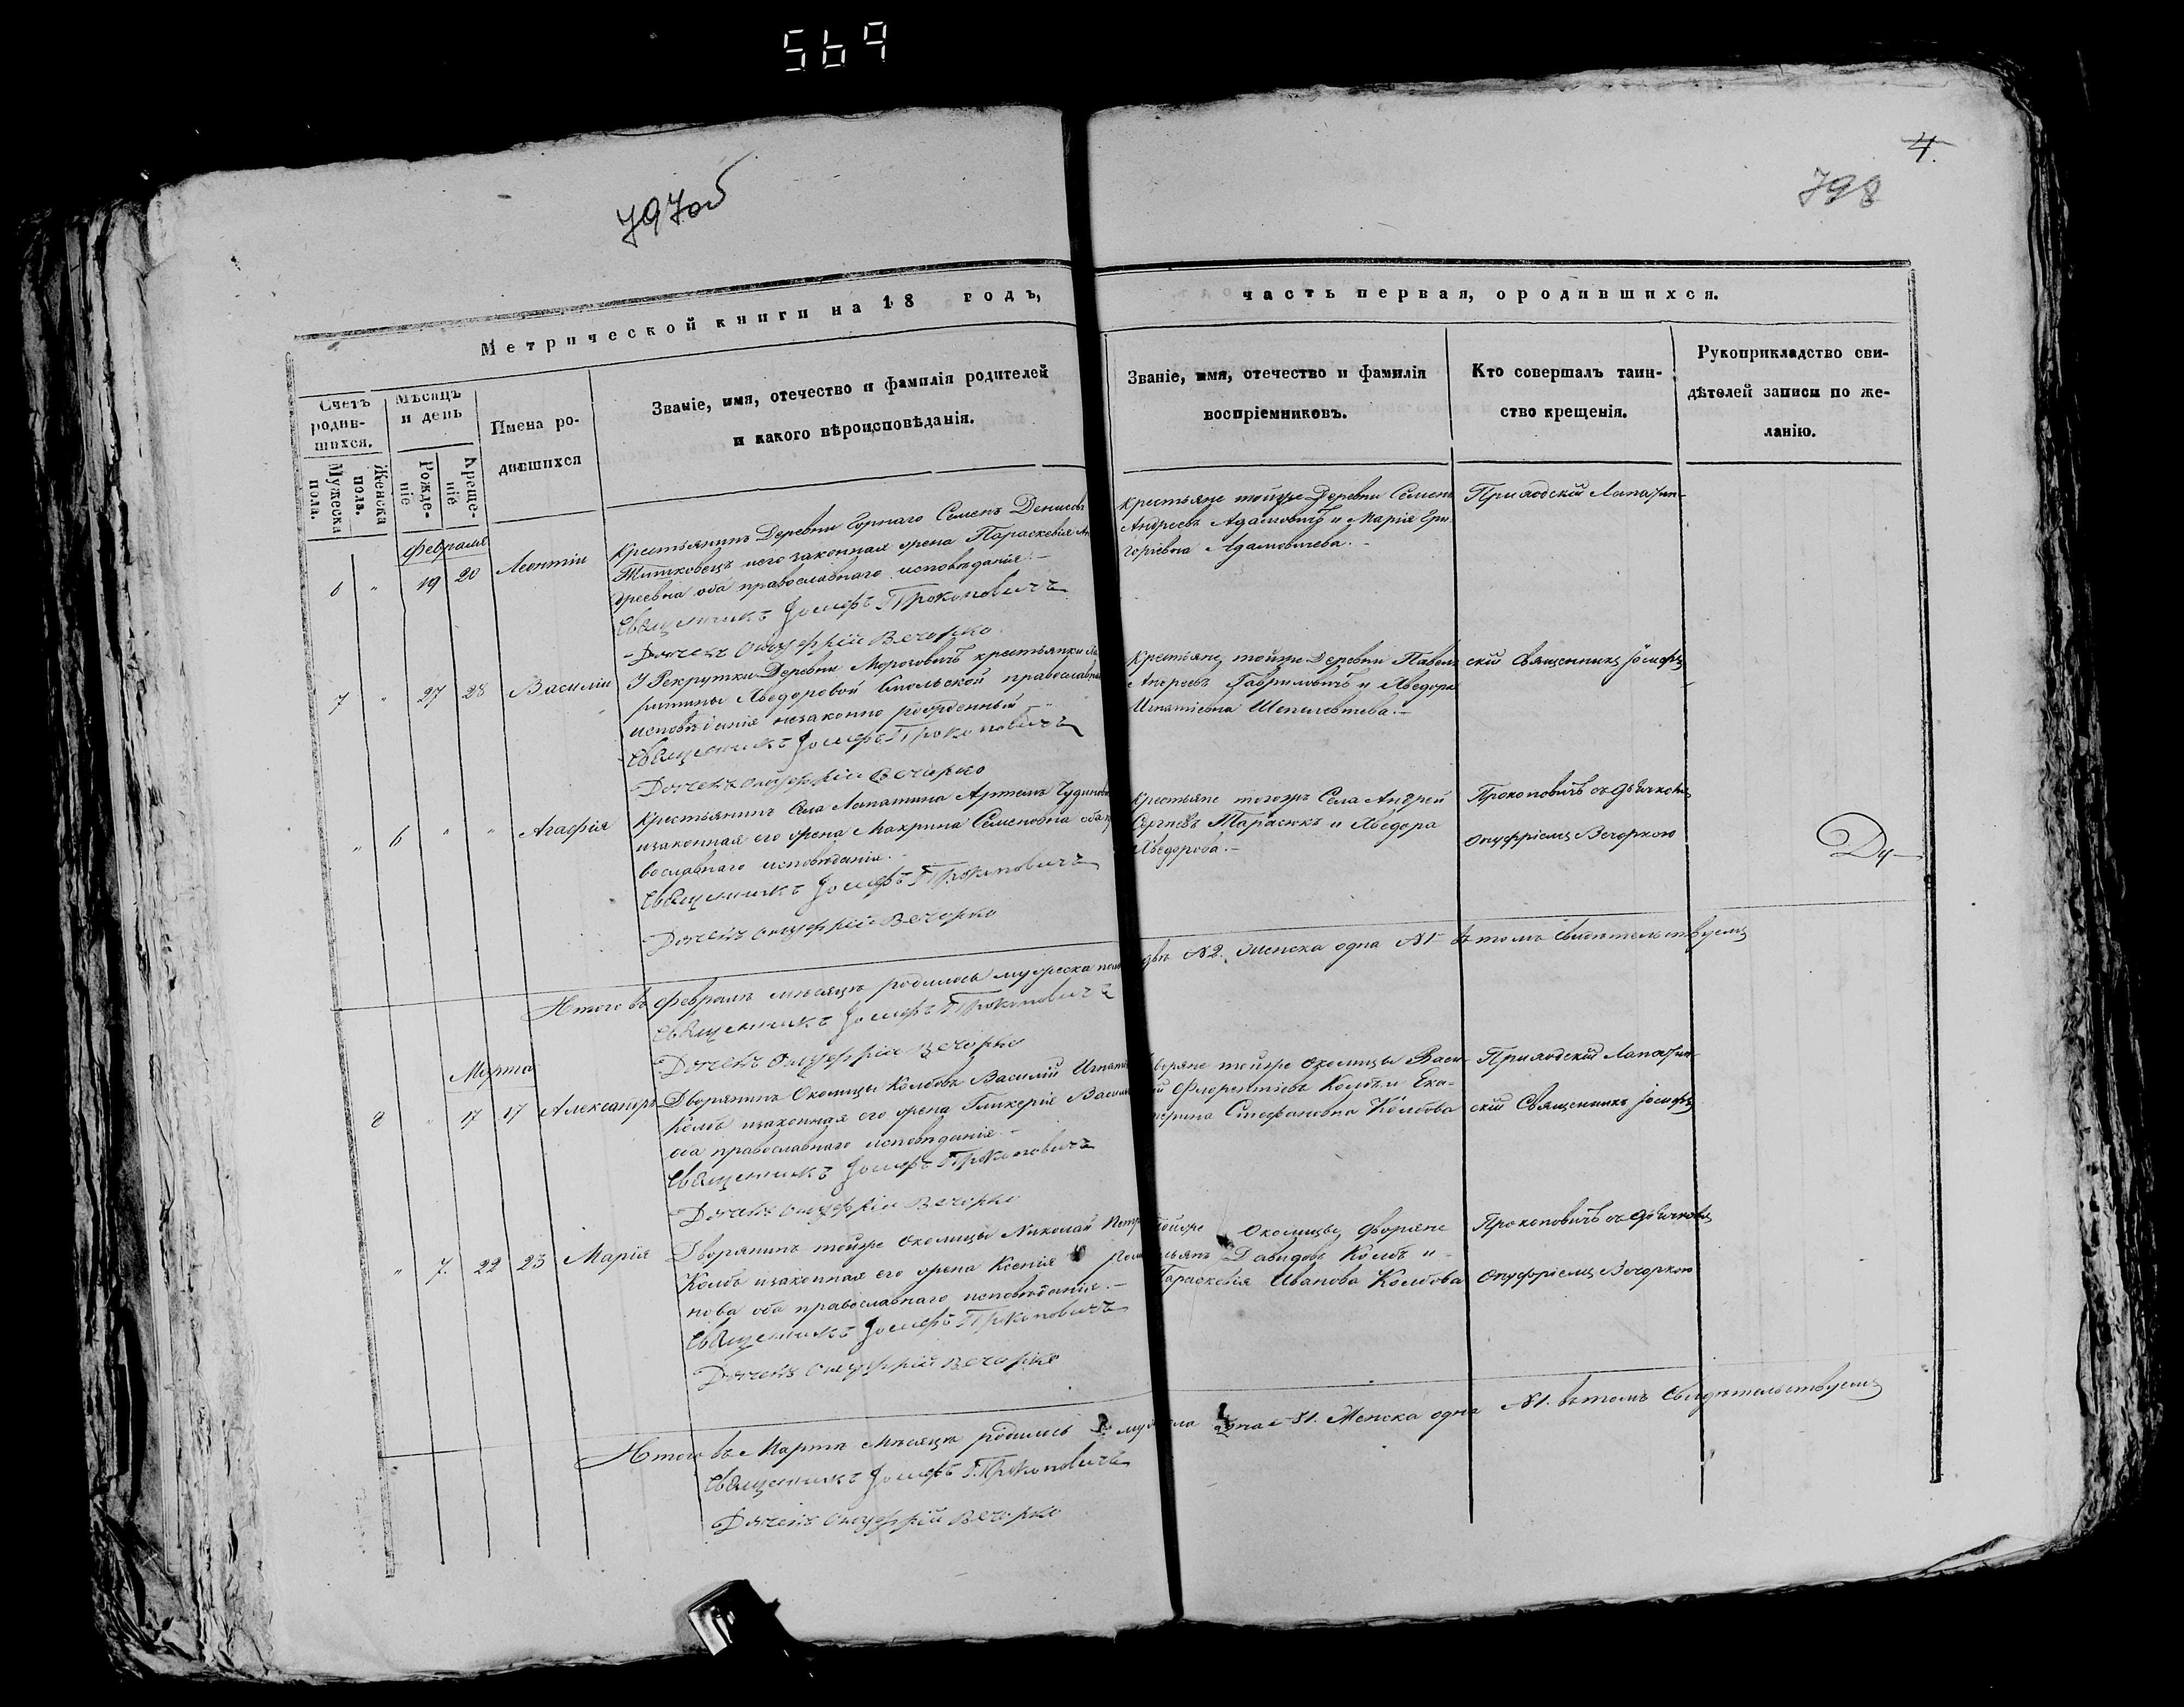 569
797об
4.
798
Метрической книги на 18 годъ,
часть первая, ородившихся.
Счетъ родив-шихся.
Мужеска пола.
Женска пола.
Мѣсяцъ и день
Рожде-ніе
Креще-ніе
Имена ро-
дившихся
Званіе, имя, отечество и фамилія родителей
и какого вѣроисповѣданія.
Званіе, имя, отечество и фамилія
воспріемниковъ.
Кто совершалъ таин-
ство крещенія.
Рукоприкладство сви-
дѣтелей записи по же-
ланію.
Февраля
6 " 19 20 Леонтій
Крестьянинъ Деревни Горнаго Семенъ Денисовъ
Титковецъ и его законная жена Параскевія Ан
дреевна оба православнаго исповѣданія.-
Священникъ Іосифъ Прокоповичъ
Дьячекъ Онуфрій Вечорко
Крестьяне тойже Деревни Семенъ
Андреевъ Адамовичъ и Марія Гри
горіевна Адамовичева.-
Приходскій Лопатин-
7 " 27 28 Василій
У Рекрутки Деревни Морозовичъ крестьянки
Ѳведоровой Смольской православнаго
исповѣданія незаконно рожденный
Священникъ Іосифъ Прокоповичъ
Дьячекъ Онуфрій Вечорко
Крестьяне тойже Деревни Павелъ
Андреевъ Гавриловичъ и Ѳведора
Игнатіевна Шепелевичева.-
скій Священникъ Іосифъ
" 6 " " Агафія
Крестьянинъ Села Лопатина Артемъ
изаконная его жена Макрина Семеновна оба
вославнаго исповѣданія.-
Священникъ Іосифъ Прокоповичъ
Дьячекъ Онуфрій Вечорко
Крестьяне тогожъ Села Андрей
Сергѣевъ Тарасюкъ и Ѳведора
Ѳведорова.-
Прокоповичъ съ Дьячкомъ
Онуфріемъ Вечоркою
Итого въ Февралѣ мѣсяцѣ родилось мужеска пола два №2. Женска одна №1 въ томъ свидѣтельствуемъ
Священникъ Іосифъ Прокоповичъ
Дьячекъ Онуфрій Вечорко
Марта
8 " 17 17 Александръ
Дворянинъ Околицы Колбовъ Василій Игнатіевъ
Колбъ изаконная его жена Гликерія Васильева
оба православнаго исповѣданія -
Священникъ Іосифъ Прокоповичъ
Дьячекъ Онуфрій Вечорко
Дворяне тойже Околицы Васи-
лій Флорентіевъ Колбъ и Ека-
терина Стефановна Колбова
Приходскій Лопатин-
скій Священникъ Іосифъ
" 7. 22 23 Марія
Дворянинъ тойже Околицы Николай Петровъ
Колбъ изаконная его жена Ксенія
нова оба православнаго исповѣданія.-
Священникъ Іосифъ Прокоповичъ
Дьячекъ Онуфрій Вечорко
Тойже Околицы дворяне
Давидовъ Колбъ и -
Параскевія Иванова Колбова
Прокоповичъ съ Дьячкомъ
Онуфріемъ Вечоркою
Итого въ Мартѣ Мѣсяцѣ родилось одна №1. Женска одна №1. въ томъ Свидѣтельствуемъ
Священникъ Іосифъ Прокоповичъ
Дьячекъ Онуфрій Вечорко